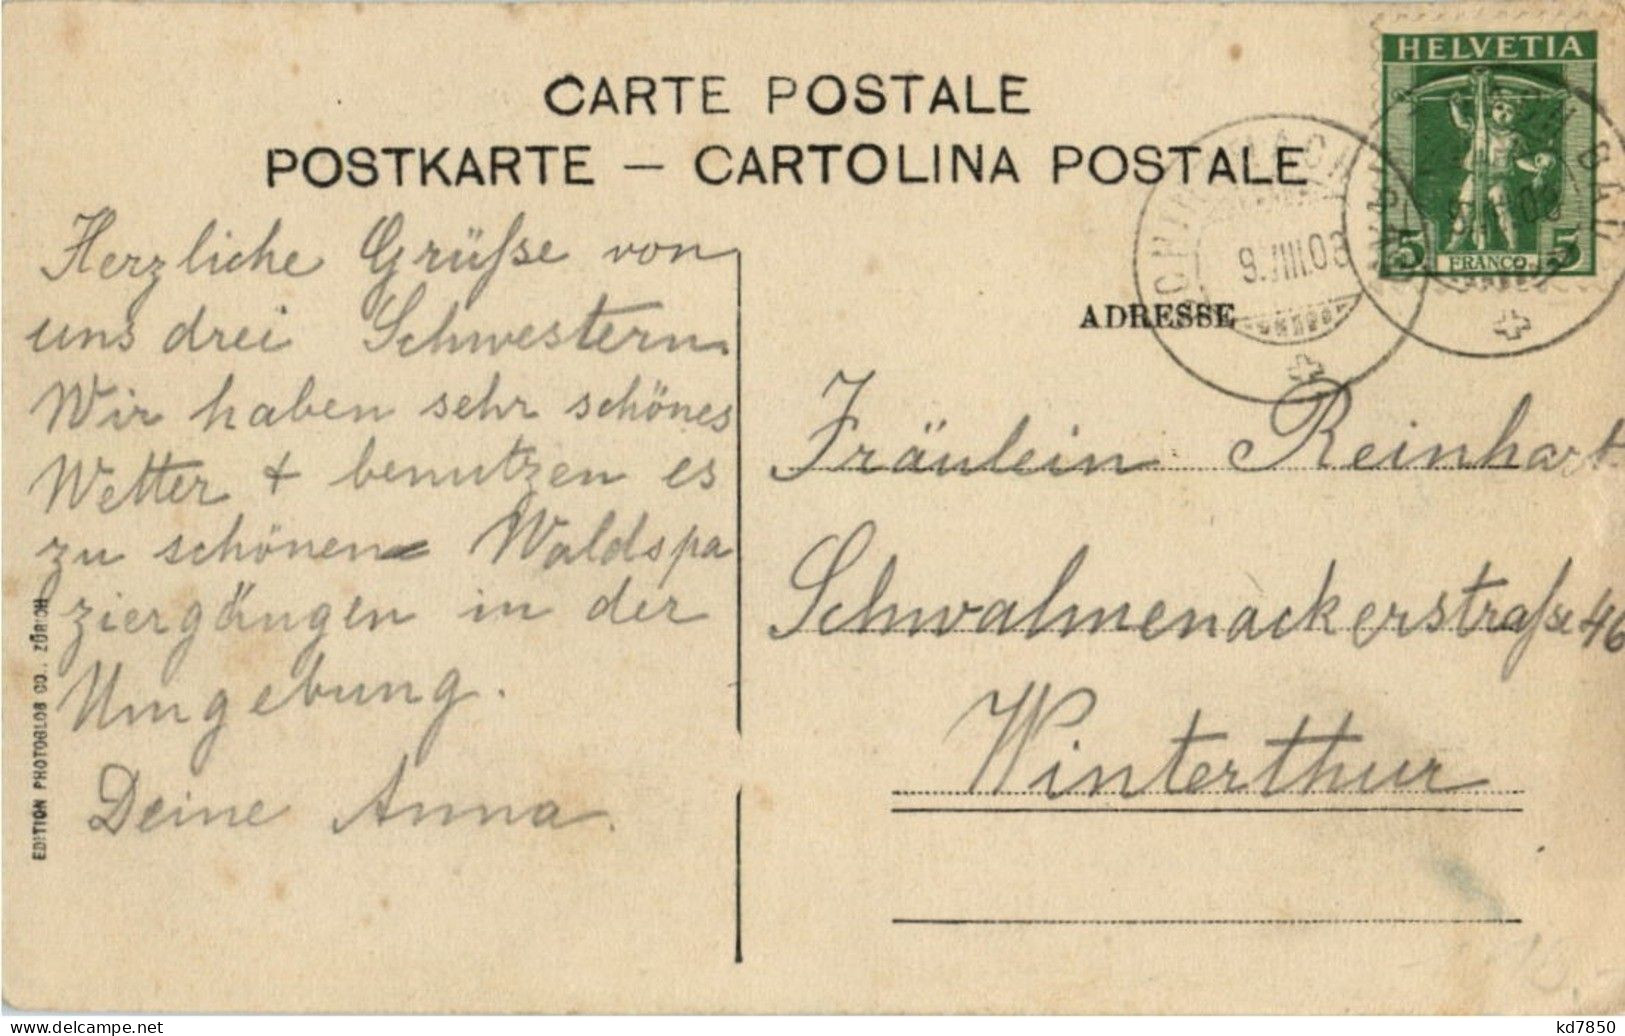 CARTE POSTALE
POSTKARTE — CARTOLINA POSTALE
HELVETIA
5 FRANCO 5
9.VIII.09
ADRESSE
Herzliche Grüsse von
uns drei Schwestern.
Wir haben sehr schönes
Wetter + benutzen es
zu schönen Waldspa
ziergängen in der
Umgebung.
Deine Anna.
Fräulein Reinhart
Schwalmenackerstrasse 46
Winterthur
EDITION PHOTOGLOB CO., ZÜRICH
kd7850